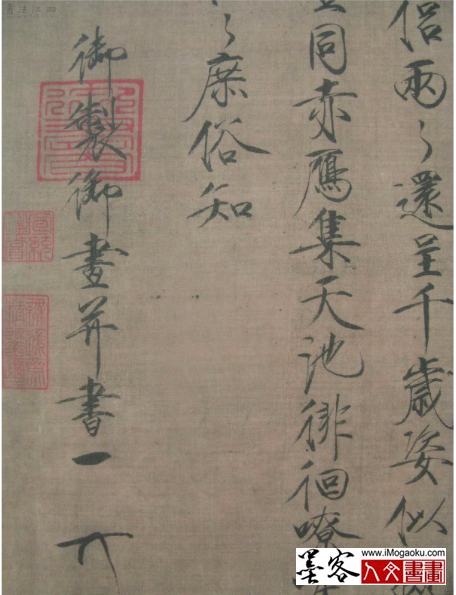 侣兩々還呈千歲姿似
同赤鴈集天池徘徊嘹
々庶俗知
御製御畫并書
墨客
www.iMogaoku.com
人文書畫